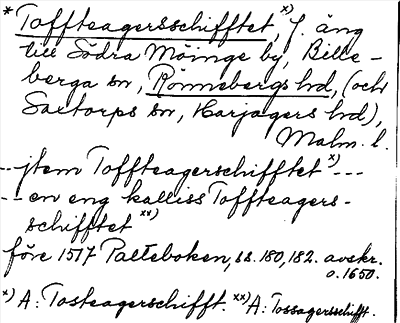 * Toffteagersschifftet, x) f. äng
till Södra Möinge by, Bille-
berga sn, Rönnebergs hd, (och
Saxtorps sn, Harjagers hd),
Malm. l.
--- jtem Toffteagerschifftet x) ---
--- en eng kalliss Toffteagers-
schifftet xx)
före 1517 Palteboken, ss. 180, 182. avskr.
o. 1650.
x) A: Tosteagerschifft. xx) A: Tossagerschifft.